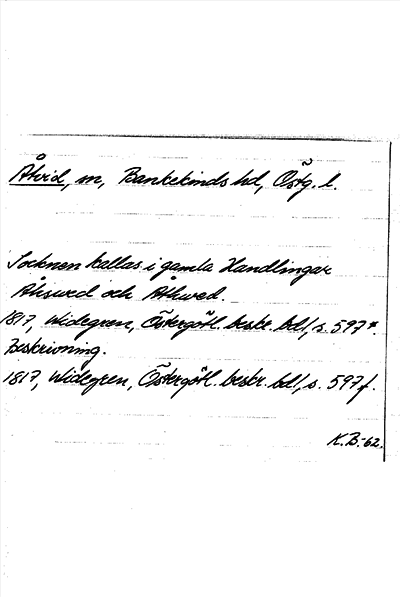 Åtvid, sn, Bankekinds hd, Östg. l.
Socknen kallas i gamla Handlingar
Åhswed och Åthwed.
1817, Widegren, Östergötl. beskr. bd 1, s. 597*.
Beskrivning.
1817, Widegren, Östergötl. beskr. bd 1, s. 597 f.
K.B.-62.